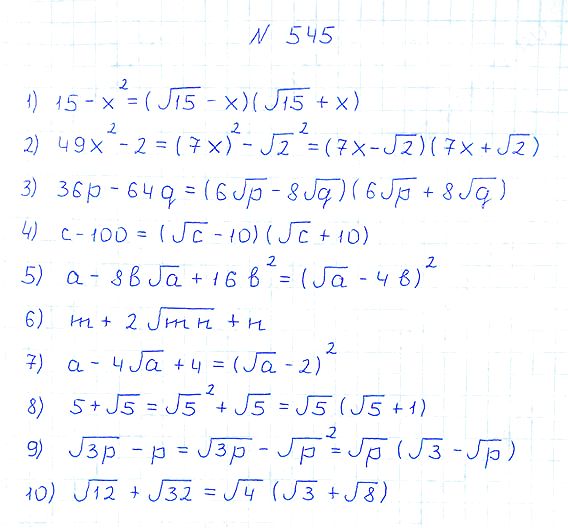 N 545
1) 15 - x² = (√15 - x)(√15 + x)
2) 49x² - 2 = (7x)² - √2² = (7x - √2)(7x + √2)
3) 36p - 64q = (6√p - 8√q)(6√p + 8√q)
4) c - 100 = (√c - 10)(√c + 10)
5) a - 8в√a + 16в² = (√a - 4в)²
6) m + 2√mn + n
7) a - 4√a + 4 = (√a - 2)²
8) 5 + √5 = √5² + √5 = √5 (√5 + 1)
9) √3p - p = √3p - √p² = √p (√3 - √p)
10) √12 + √32 = √4 (√3 + √8)